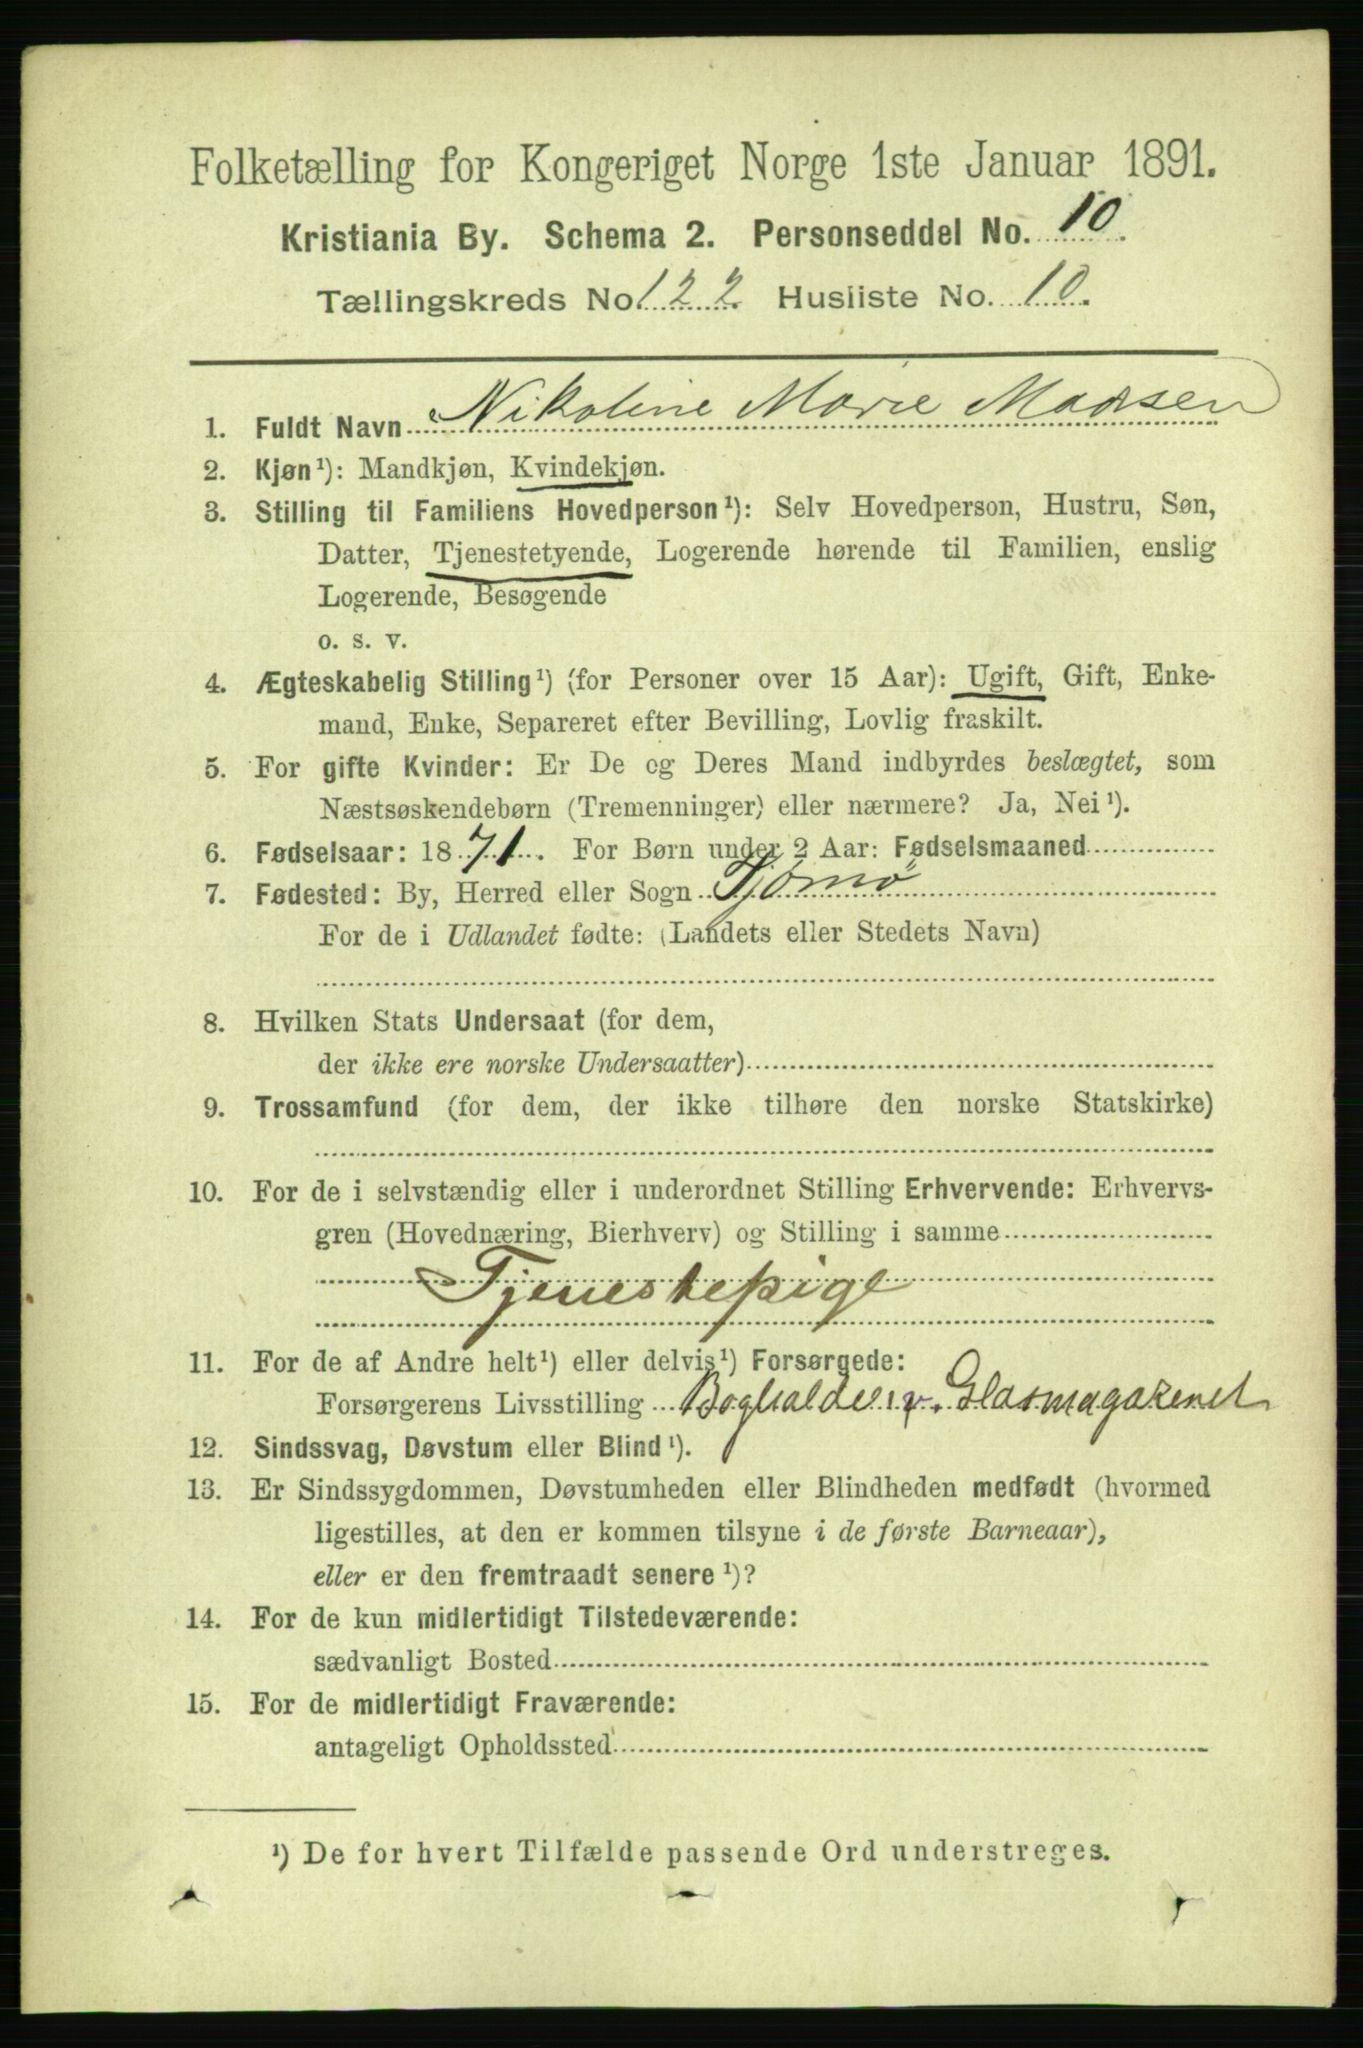 Folketælling for Kongeriget Norge 1ste Januar 1891.
Kristiania By. Schema 2. Personseddel No. 10.
Tællingskreds No 122. Husliste No. 10.
1. Fuldt Navn Nikoline Marie Madsen
2. Kjøn¹): Mandkjøn, Kvindekjøn.
3. Stilling til Familiens Hovedperson¹): Selv Hovedperson, Hustru, Søn,
Datter, Tjenestetyende, Logerende hørende til Familien, enslig
Logerende, Besøgende
o. s. v.
4. Ægteskabelig Stilling¹) (for Personer over 15 Aar): Ugift, Gift, Enke-
mand, Enke, Separeret efter Bevilling, Lovlig fraskilt.
5. For gifte Kvinder: Er De og Deres Mand indbyrdes beslægtet, som
Næstsøskendebørn (Tremenninger) eller nærmere? Ja, Nei¹).
6. Fødselsaar: 1871. For Børn under 2 Aar: Fødselsmaaned
7. Fødested: By, Herred eller Sogn Tjömö
For de i Udlandet fødte: (Landets eller Stedets Navn)
8. Hvilken Stats Undersaat (for dem,
der ikke ere norske Undersaatter)
9. Trossamfund (for dem, der ikke tilhøre den norske Statskirke)
10. For de i selvstændig eller i underordnet Stilling Erhvervende: Erhvervs-
gren (Hovednæring, Bierhverv) og Stilling i samme
Tjenestepige
11. For de af Andre helt¹) eller delvis¹) Forsørgede:
Forsørgerens Livsstilling Bogholder v. Glasmagazinet
12. Sindssvag, Døvstum eller Blind¹).
13. Er Sindssygdommen, Døvstumheden eller Blindheden medfødt (hvormed
ligestilles, at den er kommen tilsyne i de første Barneaar),
eller er den fremtraadt senere¹)?
14. For de kun midlertidigt Tilstedeværende:
sædvanligt Bosted
15. For de midlertidigt Fraværende:
antageligt Opholdssted
¹) De for hvert Tilfælde passende Ord understreges.